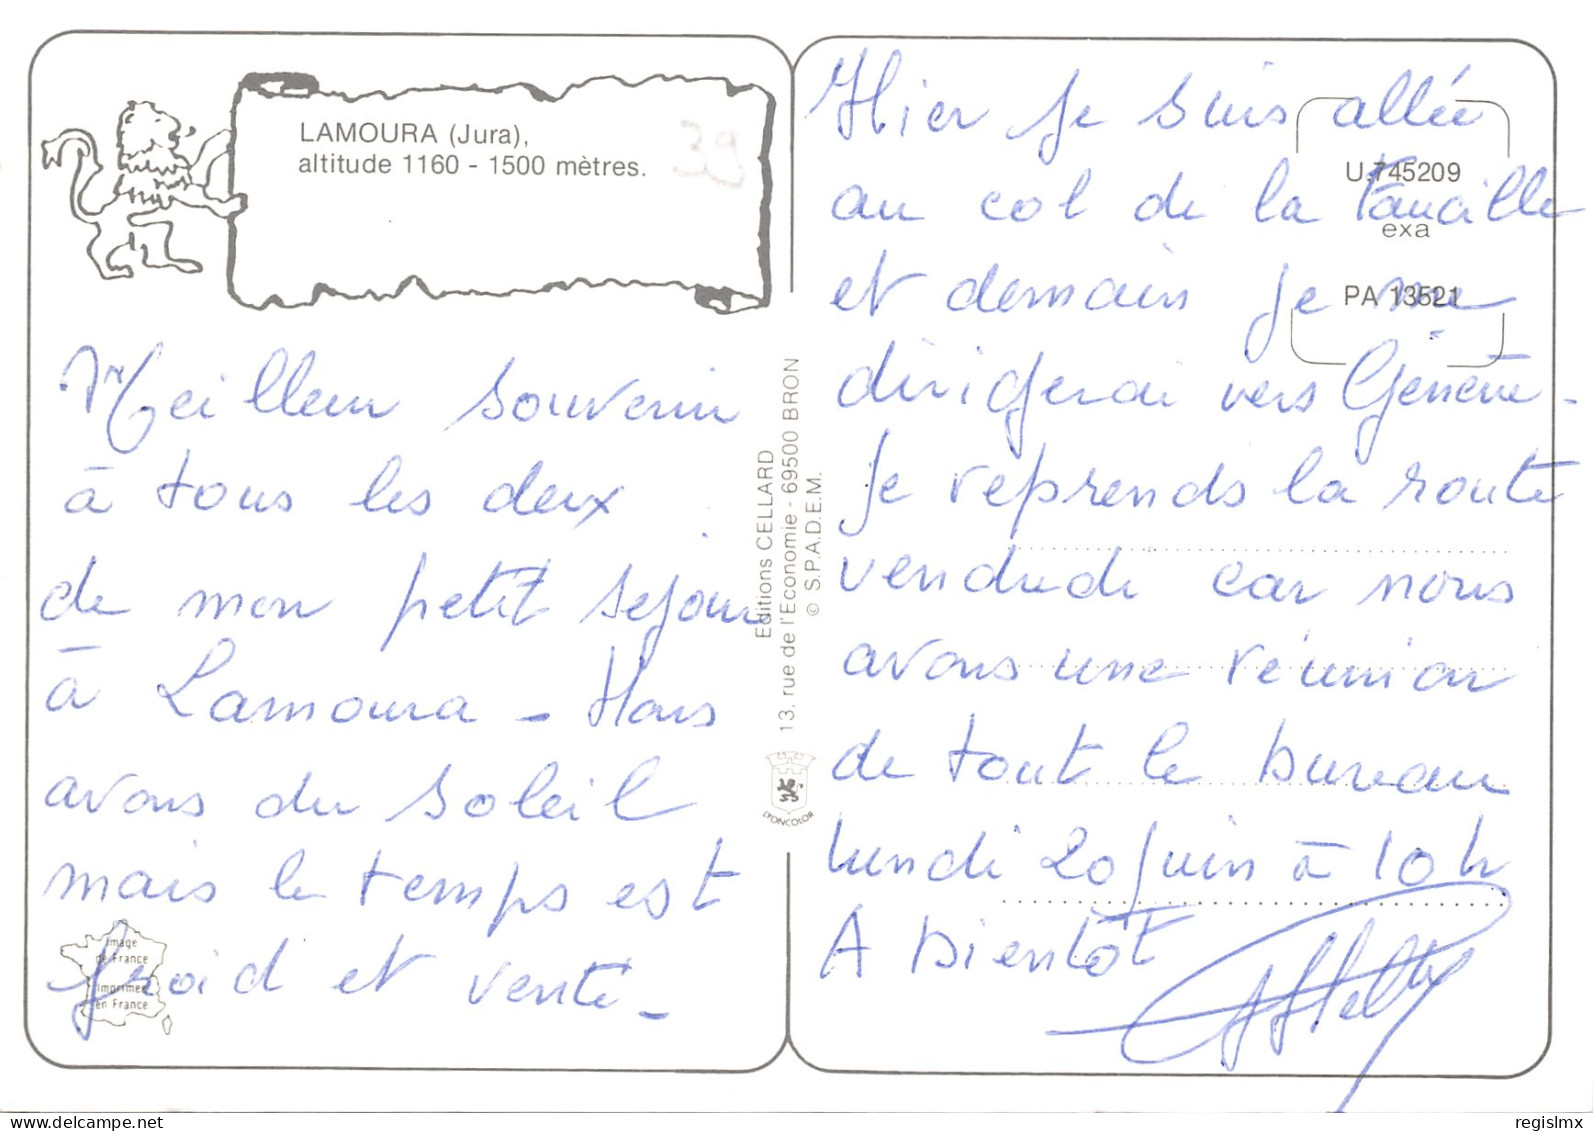 LAMOURA (Jura),
altitude 1160 - 1500 mètres.
39
Meilleur souvenir
à tous les deux
de mon petit séjour
à Lamoura - Nous
avons du soleil
mais le temps est
froid et venté -
Image
de France
Imprimée
en France
Editions CELLARD
13, rue de l'Economie - 69500 BRON
© S.P.A.D.E.M.
LYONCOLOR
U.745209
exa
PA 13521
Hier je suis allée
au col de la Faucille
et demain je me
dirigerai vers Genève -
Je reprends la route
vendredi car nous
avons une réunion
de tout le bureau
lundi 20 juin à 10 h
A bientôt
regislmx
www.delcampe.net